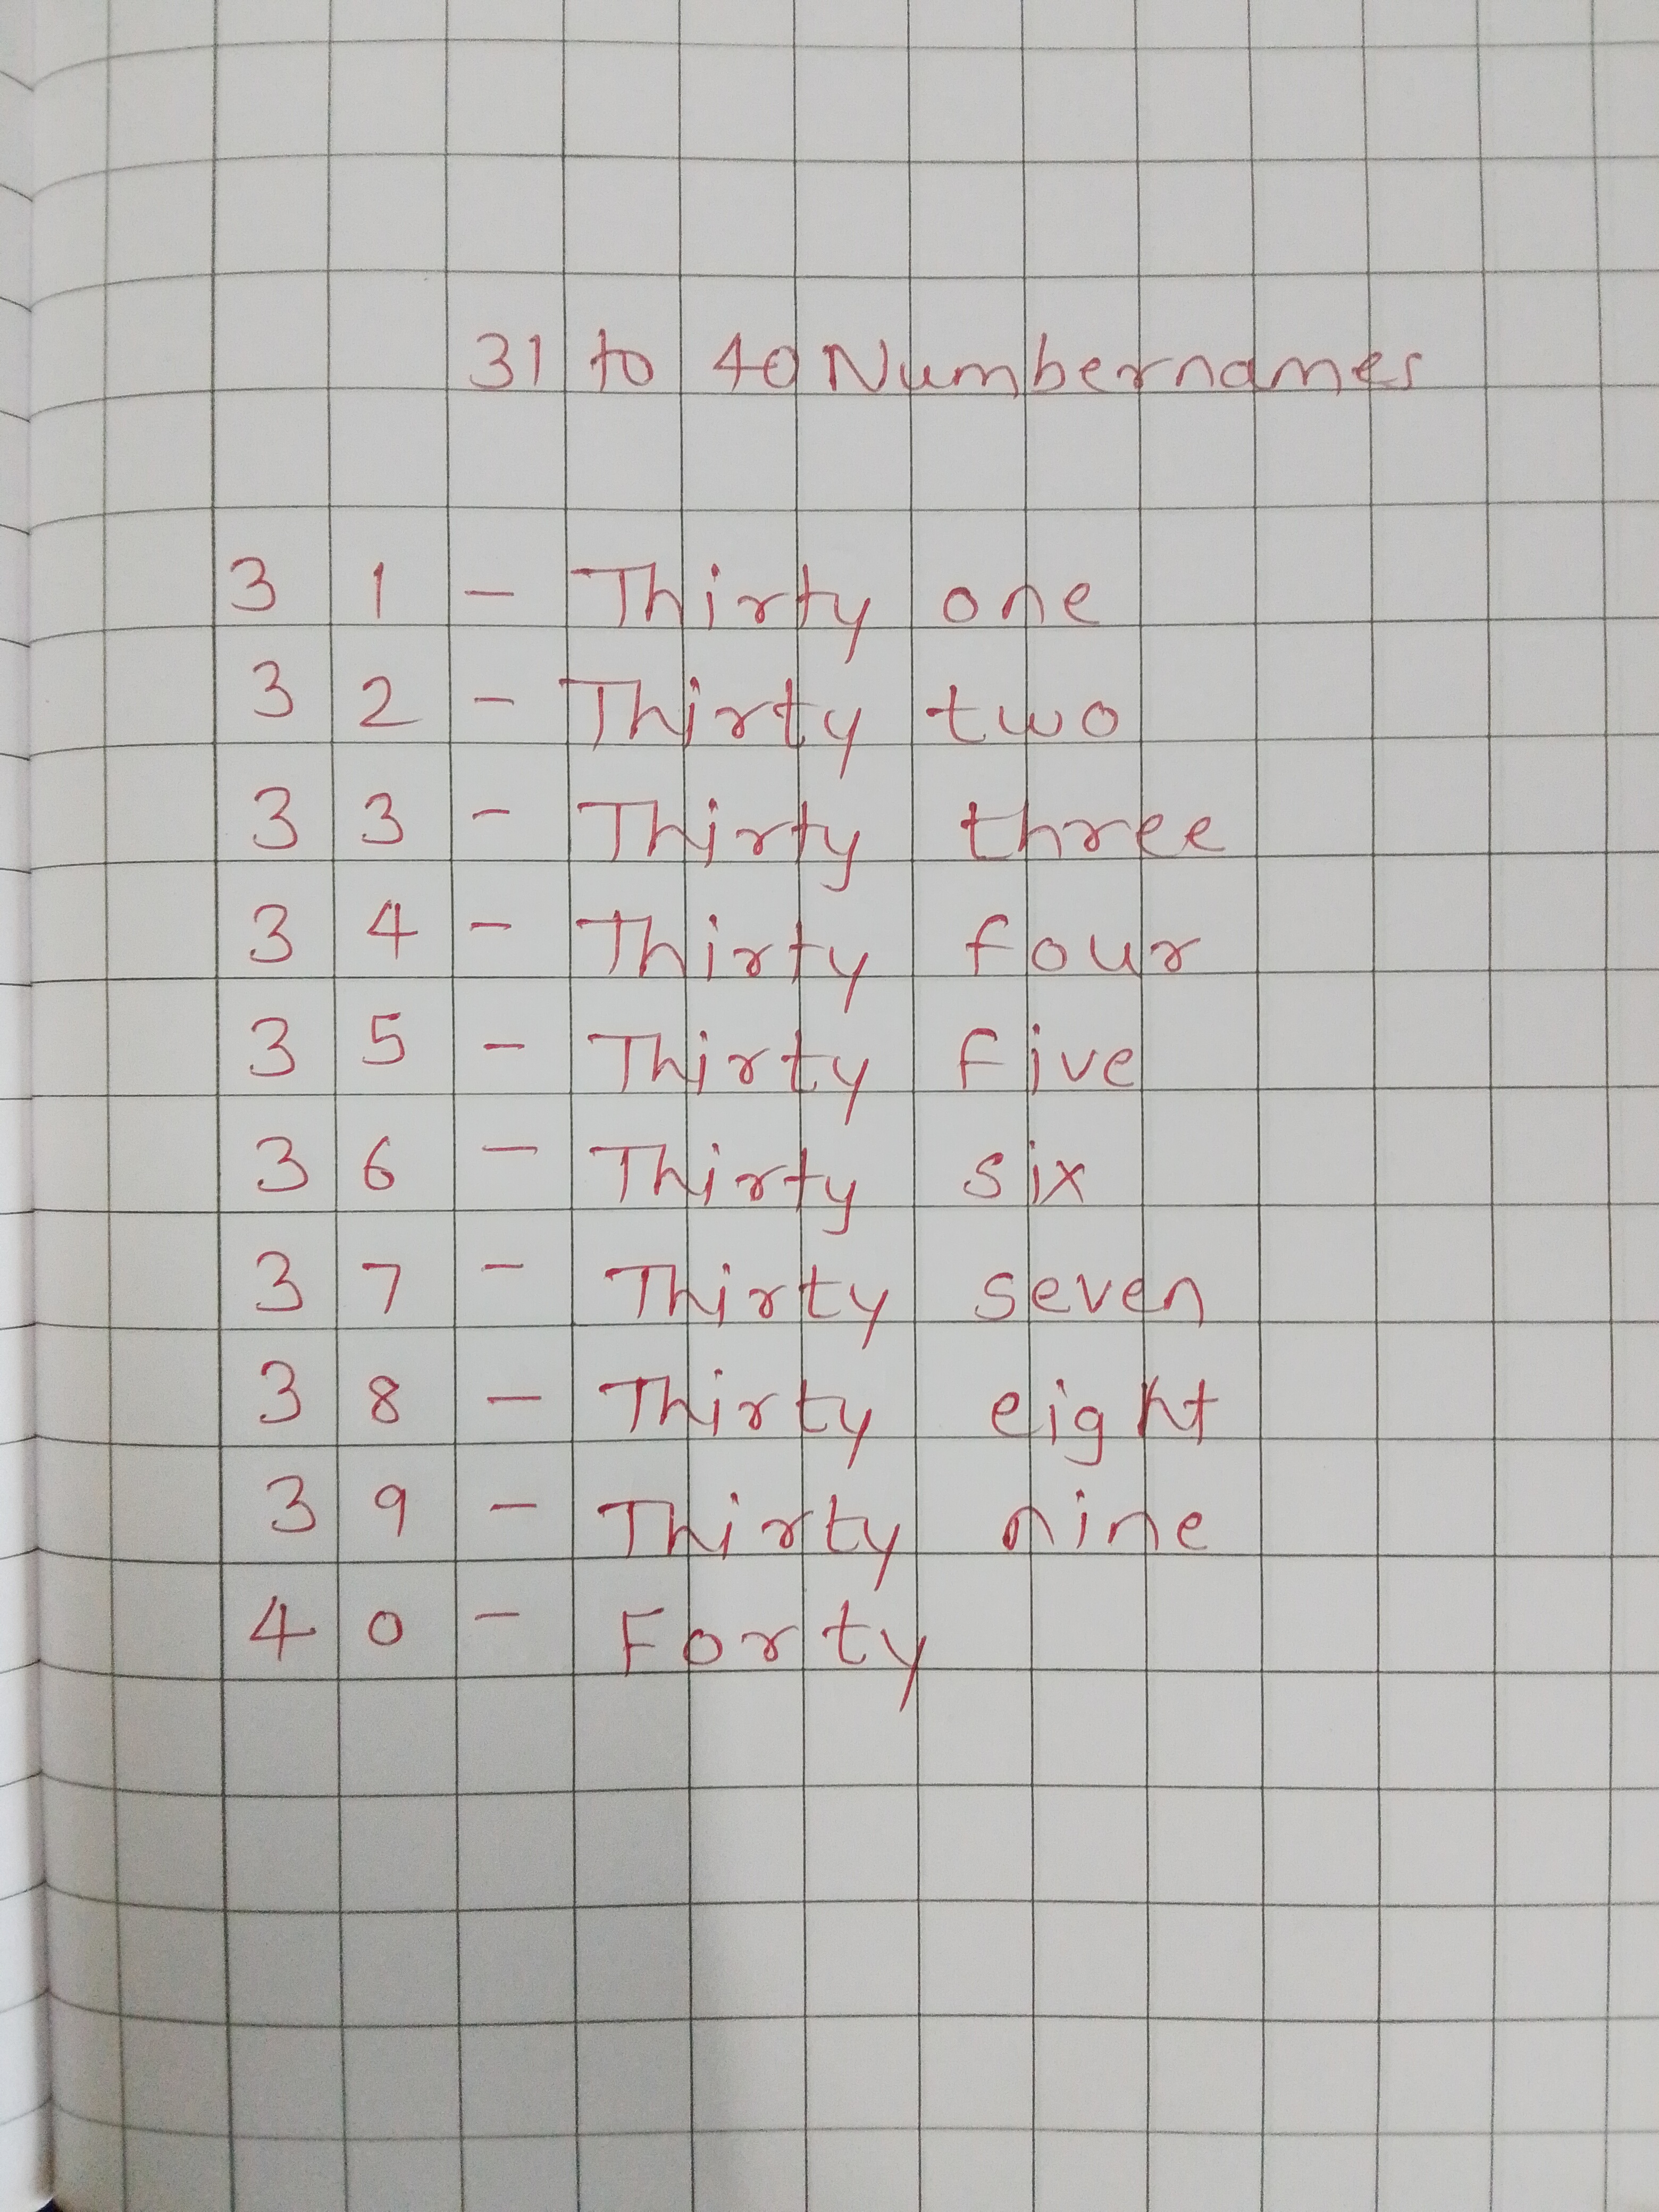 31 to 40 Numbernames
31 - Thirty one
32 - Thirty two
33 - Thirty three
34 - Thirty four
35 - Thirty five
36 - Thirty six
37 - Thirty seven
38 - Thirty eight
39 - Thirty nine
40 - Forty